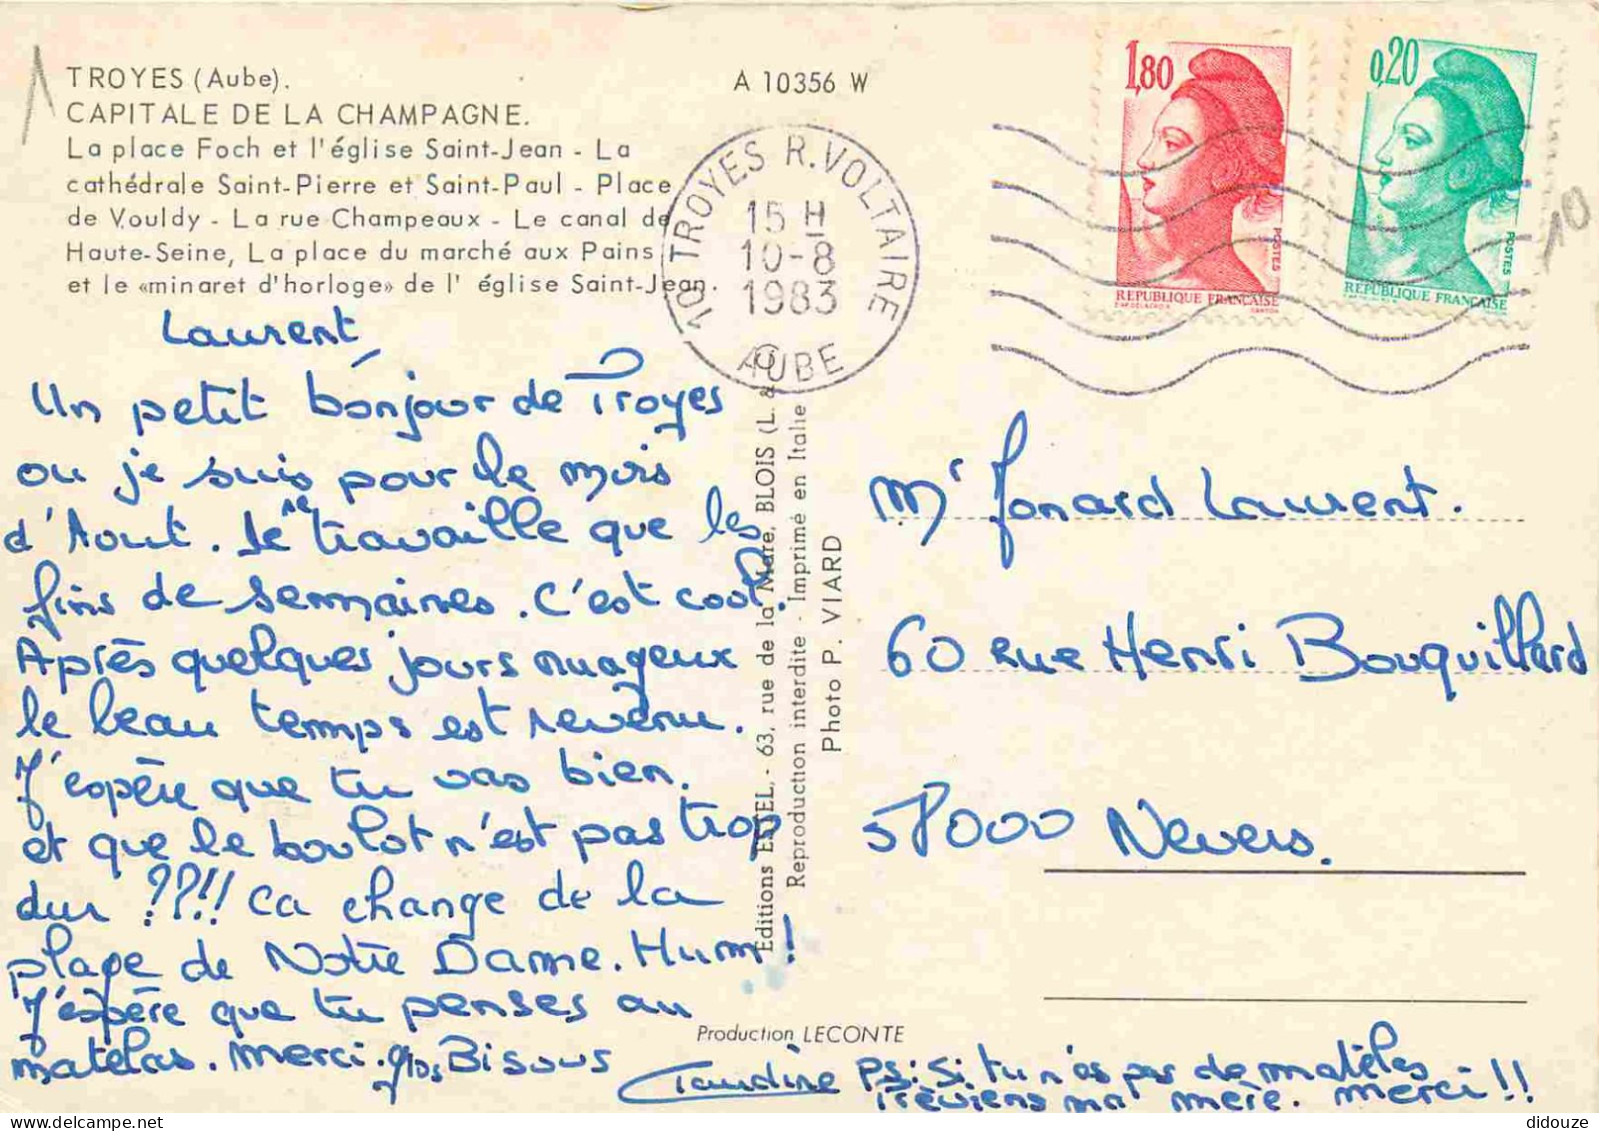 TROYES (Aube).
CAPITALE DE LA CHAMPAGNE.
La place Foch et l'église Saint-Jean - La
cathédrale Saint-Pierre et Saint-Paul - Place
de Vouldy - La rue Champeaux - Le canal de
Haute-Seine, La place du marché aux Pains
et le «minaret d'horloge» de l' église Saint-Jean.
A 10356 W
10 TROYES R. VOLTAIRE
15 H
10-8
1983
AUBE
1,80
POSTES
REPUBLIQUE FRANÇAISE
0,20
POSTES
REPUBLIQUE FRANÇAISE
10
Laurent,
Un petit bonjour de Troyes
ou je suis pour le mois
d'Aout. Je ne travaille que les
fins de semaines. C'est cool.
Après quelques jours nuageux
le beau temps est revenu.
J'espère que tu vas bien.
et que le boulot n'est pas trop
dur ??!! ca change de la
plage de Notre Dame. Hum!
J'espère que tu penses au
matelas. Merci. gros Bisous
Claudine
Ps: Si tu n'as pas de matelas
Préviens ma mère. Merci!!
Editions ESTEL, - 63, rue de la Mare, BLOIS (L. &
Reproduction interdite - Imprimé en Italie
Photo P. VIARD
Production LECONTE
Mr Jonard Laurent.
60 rue Henri Bouquillard
58000 Nevers.
didouze